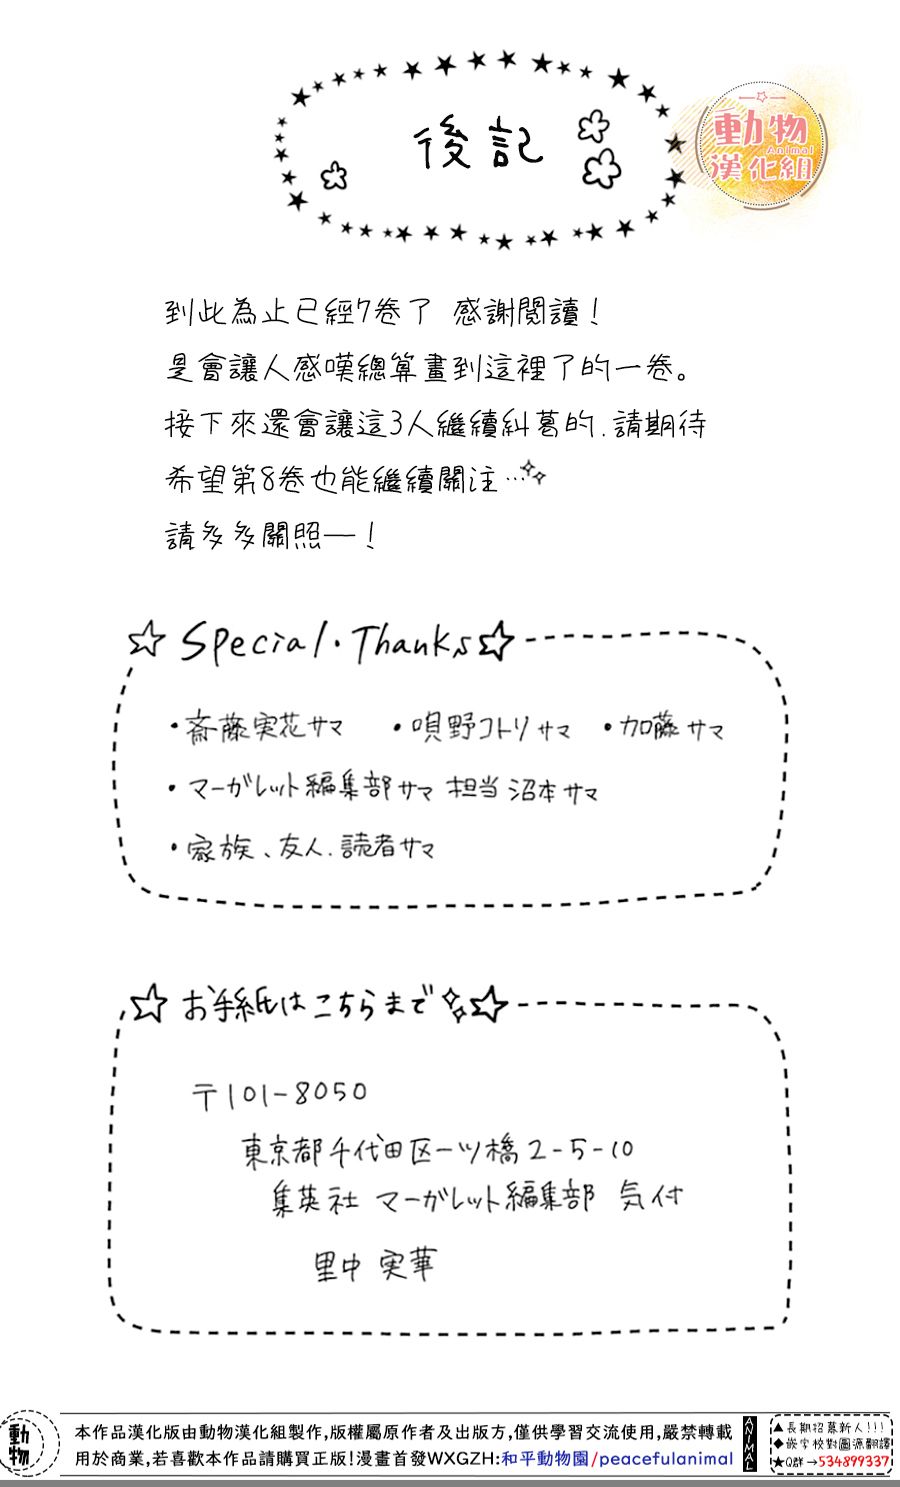 後記
動物
Animal
漢化組
到此為止已經7卷了 感謝閱讀!
是會讓人感嘆總算畫到這裡了的一卷。
接下來還會讓這3人繼續糾葛的.請期待
希望第8卷也能繼續關注…
請多多關照—!
☆Special・Thanks☆
・斎藤実花サマ ・唄野コトリサマ ・加藤サマ
・マーガレット編集部サマ 担当 沼本サマ
・家族、友人.読者サマ
☆お手紙はこちらまで☆
〒101-8050
東京都千代田区一ツ橋2-5-10
集英社 マーガレット編集部 気付
里中 実華
動物
本作品漢化版由動物漢化組製作,版權屬原作者及出版方,僅供學習交流使用,嚴禁轉載
用於商業,若喜歡本作品請購買正版!漫畫首發WXGZH:和平動物園/peacefulanimal
ANIMAL
▲長期招募新人!!!
◆嵌字校對圖源翻譯
★Q群→534899337